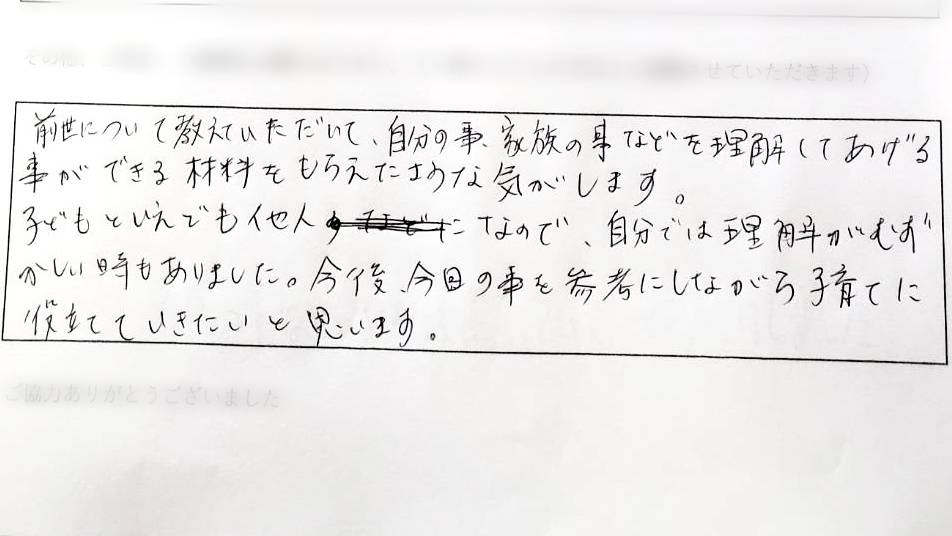 その他、
せていただきます)
前世について教えていただいて、自分の事、家族の事などを理解してあげる
事ができる材料をもらえたような気がします。
子どもといえでも他人なので、自分では理解がむず
かしい時もありました。今後、今回の事を参考にしながら子育てに
役立てていきたいと思います。
ご協力ありがとうございました